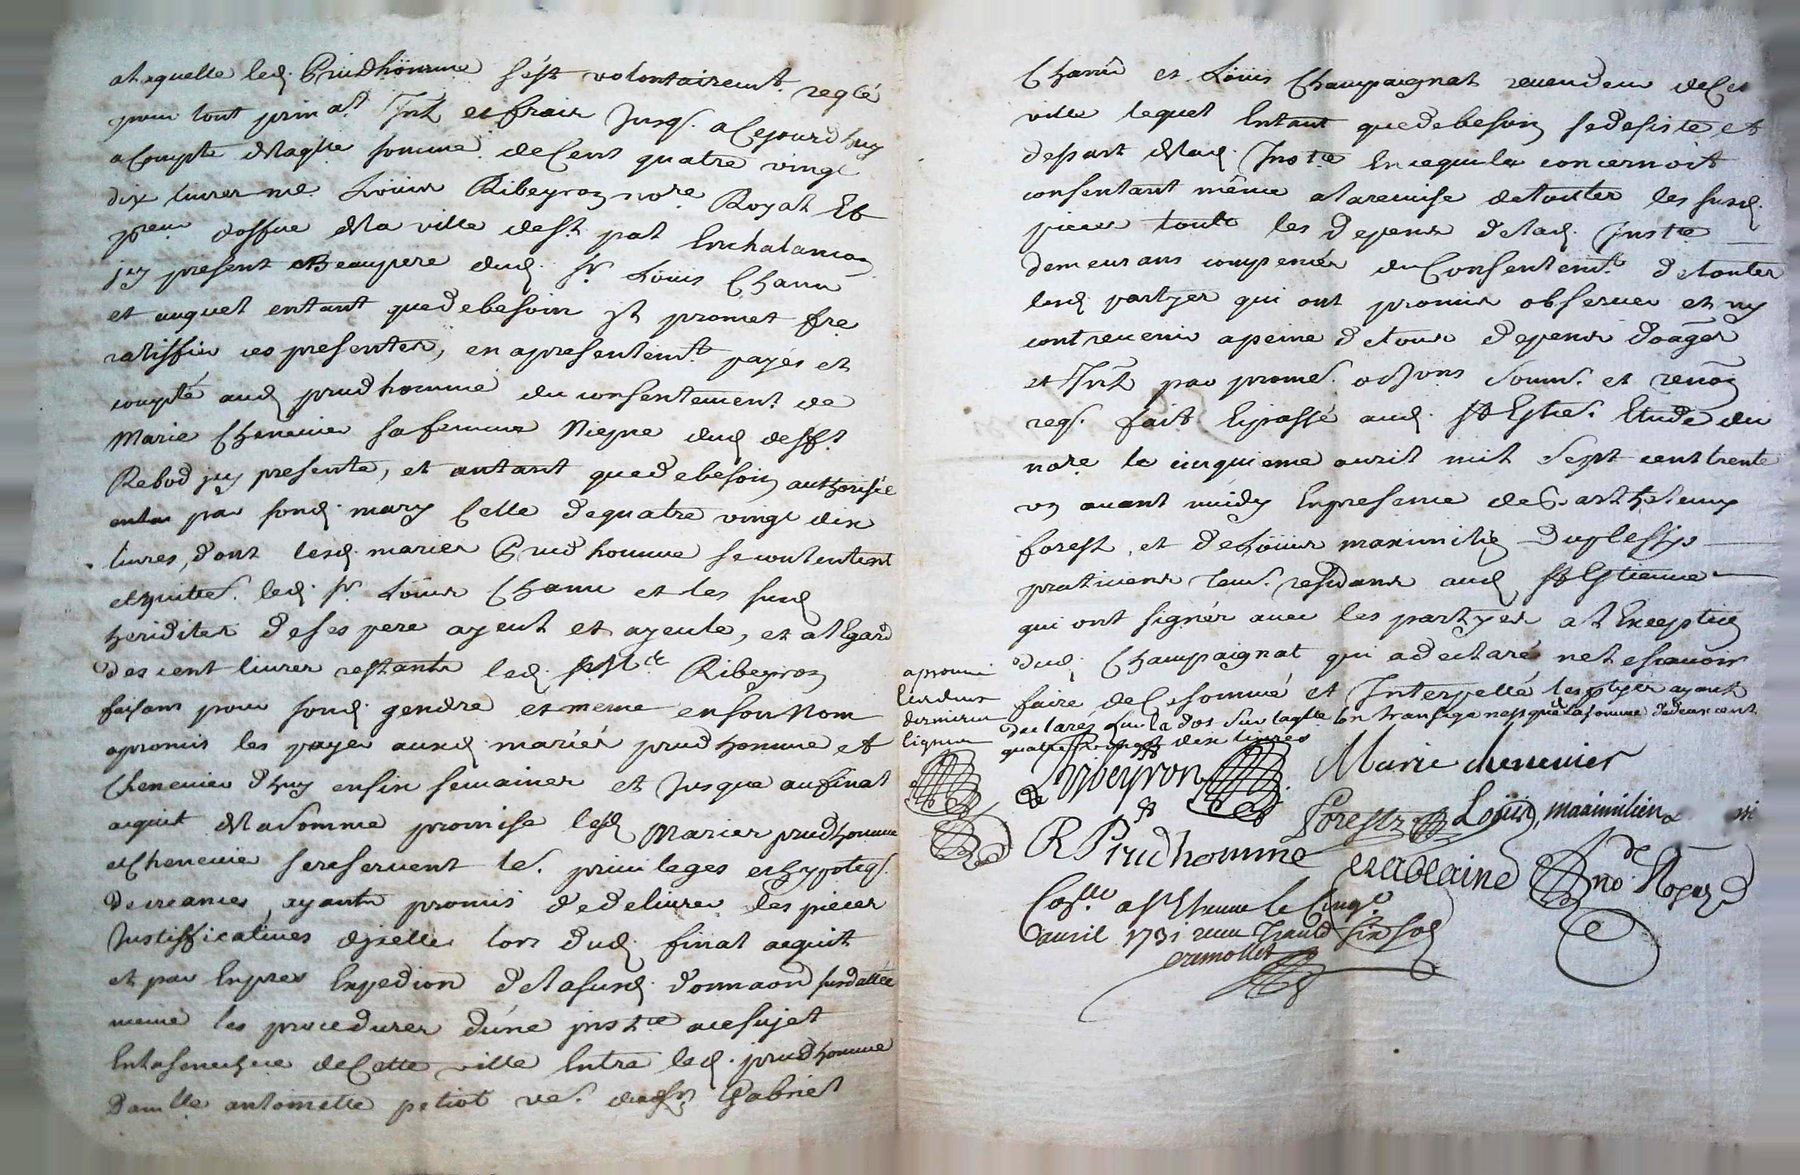 alaquelle led. Prudhomme s'est volontairemt. reglé
pour tout prin al. Int et frais Jusq. a Cejourdhuy
acompte de laqlle somme de Cent quatre vingt
dix livres me. Loüis Ribeyron nore. Royal Et
preur doffice de la ville de st. pal Enchalancon
jcy present et Beaupere dud. Sr. Loüis Chanu
et auquel entant quedebesoin jl promet fre
ratiffier ces presentes, en apresentemt. payés et
compté aud prudhomme du consentement de
Marie Chenevier safemme Niepce dud defft
Rebod jcy presente, et antant quedebesoin authorisée
par sond. mary Celle dequatre vingt dix
livres, dont lesd. mariés Prudhomme secontentent
etquittes. led. Sr. Loüis Chanu et les susd
heridites deses pere ayeul et ayeule, et alEgard
des cent livres restants led. Me Ribeyron
faisant pour sond. gendre et meme ensonNom
apromis les payer ausd. mariés prudhomme et
Chenevier dhuy ensix semaines et Jusque aufinal
acquit delasomme promise lesd Mariés prudhomme
etChenevier sereservent les. privileges ethypoteq.
decreances, ayants promis dedelivrer les pieces
Justifficatives djcelle lors dud. final acquit
et par Exprès Expedion delasusd. donnaon susdattée
meme les procedures d'une jnstce acesujet
Entaseneschee deCette ville Entre led. prudhomme
damlle antoinette petiot ve. dudsr. Gabriel
Chanu et Loüis Champaignat revendeur deCet
ville lequel Entant quedebesoin sedesiste et
depart delad. Instce Encequila concernoit
consentant même alaremise detoutes les susd.
pieces touts les depens delad. Instce
demeurans compensés duConsentemt. detoutes
lesd. partyes qui ont promis observer et ny
contrevenir apeine detous depens domages
et Int par promes. obons soums. et renon
reqs. fait Epassé aud. St Estne. Etude du
nore le cinquieme avril mil sept cent trente
un avant midy Enpresence de barthelemy
forest, et deLoüis maximilien duplessys
praticiens tous. residans aud St Estienne
qui ont signés avec les partyes alException
dud. Champaignat qui adeclaré nelescavoir
faire deCesommé et Interpellé lesptyes ayant
declarés quela dot sur laqlle lon transige nest que delasomme dedeux cent
quatre vingt dix livres
aprouvé
lesdeux
dernieres
lignes
Ribeyron
Marie chenevier
Forest
Loüis, maximilien
R Prudhomme
nore Royal
Conlle a St Etienne le Cinqe
avril 1731 recu Trante six sols